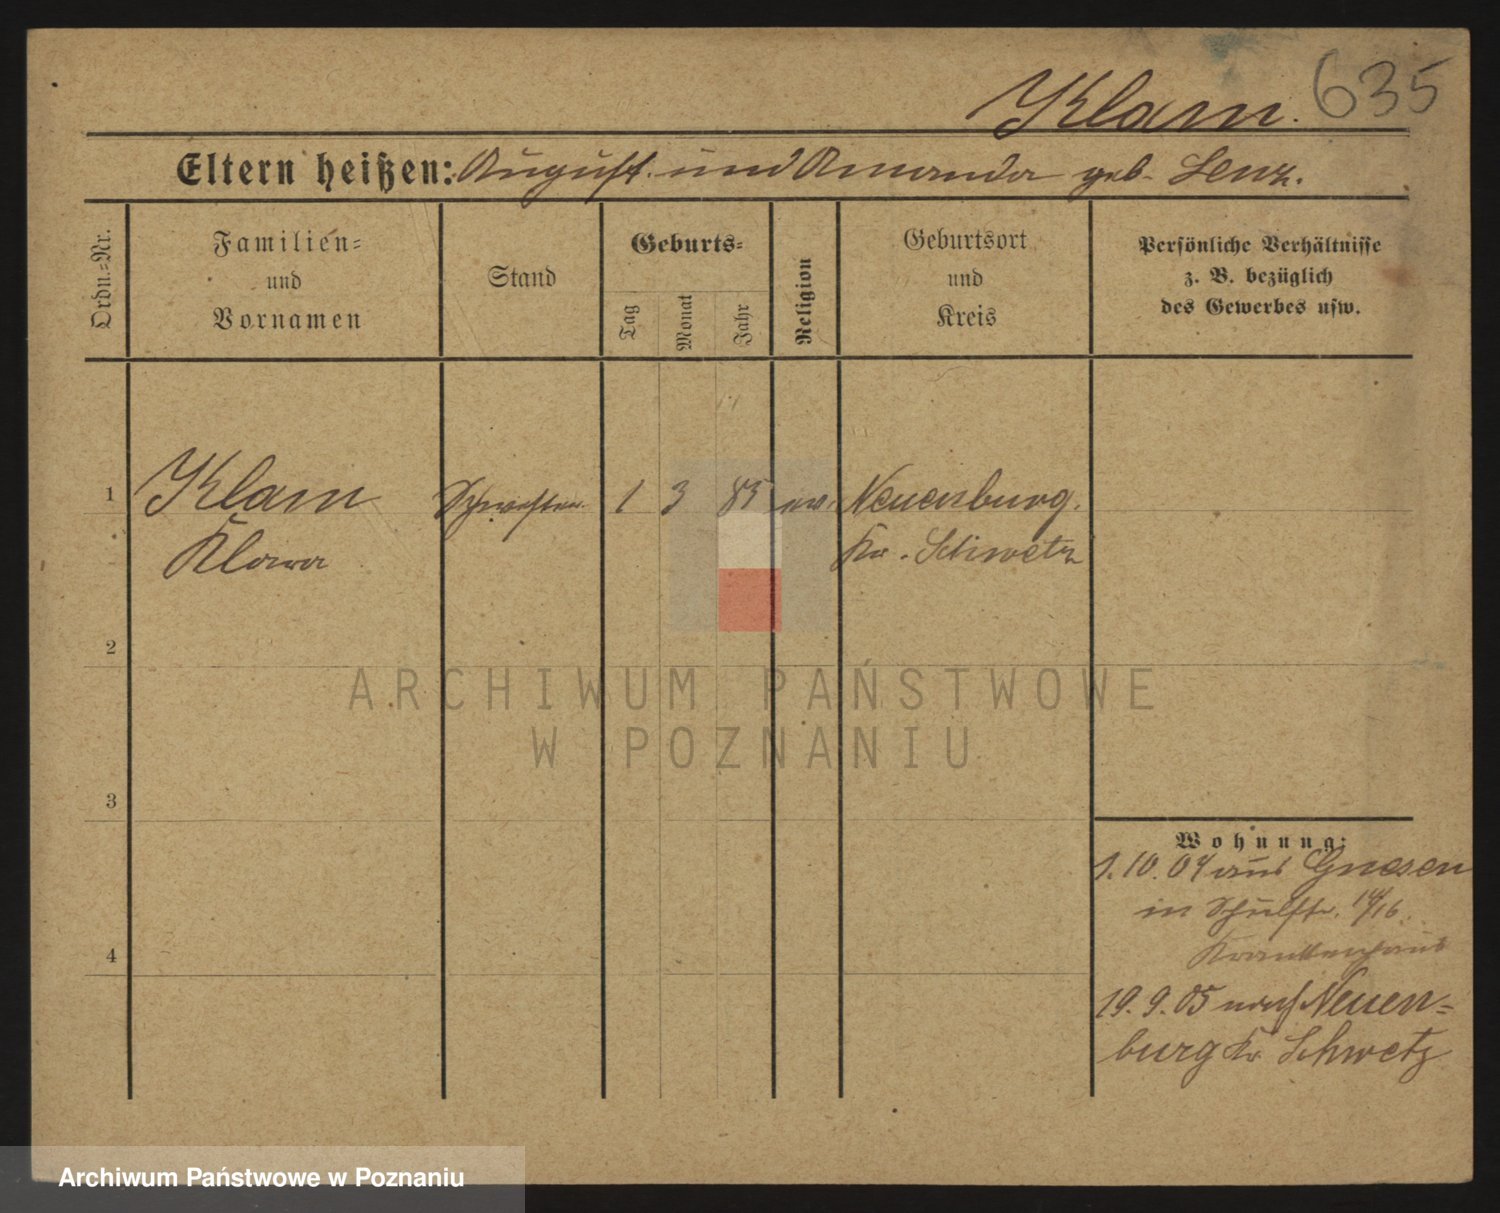 Klam. 635
Eltern heißen: August und Amanda geb. Lenz.
Ordn.-Nr.
Familien- und Vornamen
Stand
Geburts-
Tag
Monat
Jahr
Religion
Geburtsort und Kreis
Persönliche Verhältnisse
z. B. bezüglich
des Gewerbes usw.
1 Klam Schwester 1 3 85 ev. Neuenburg.
Klara Kr. Schwetz
2
ARCHIWUM PAŃSTWOWE
W POZNANIU
3
Wohnung:
1.10.04 aus Gnesen
in Schulstr. 14/16.
Krankenhaus
4
19.9.05 nach Neuen-
burg Kr Schwetz
Archiwum Państwowe w Poznaniu